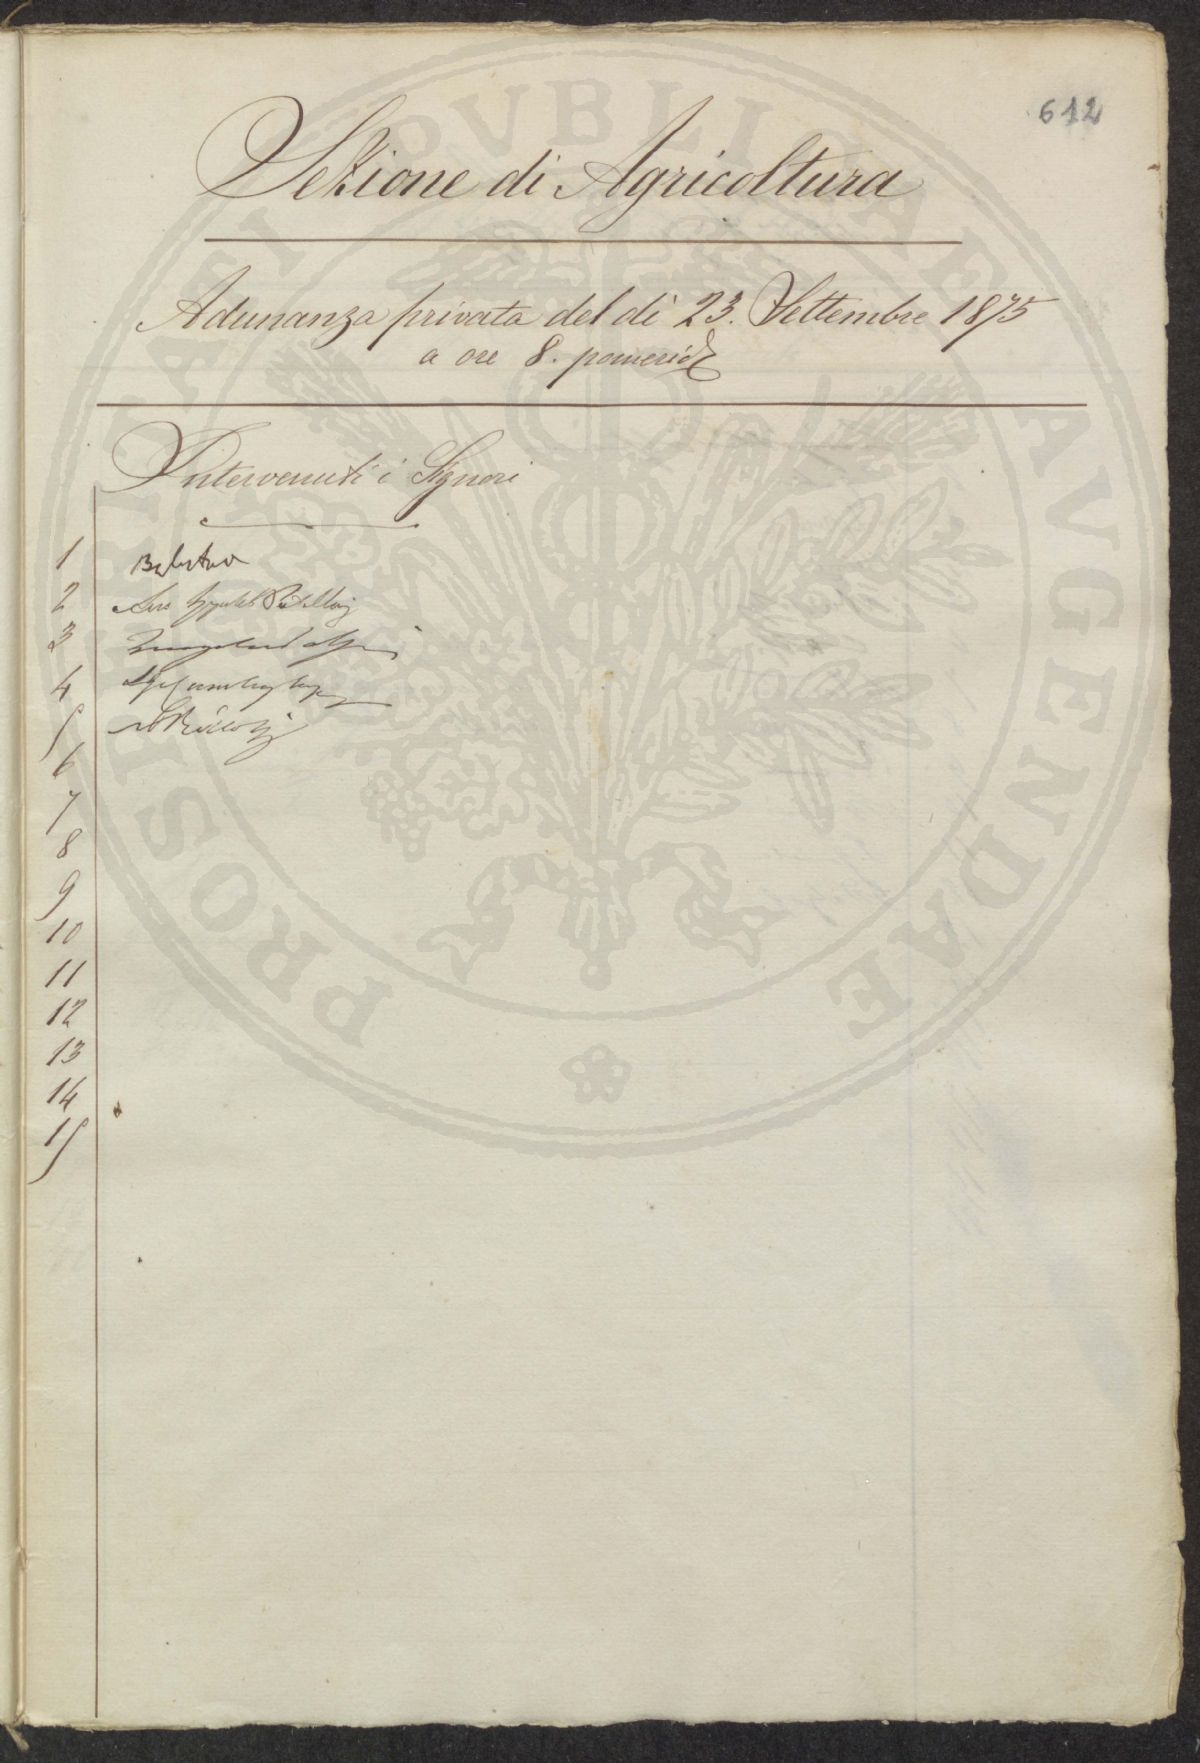 612
Sezione di Agricoltura
Adunanza privata del dì 23. Settembre 1875
a ore 8. pomerid
Intervenuti i Signori
1
2
3
4
5
6
7
8
9
10
11
12
13
14
15
PROSPERITATI PVBLICAE AVGENDAE